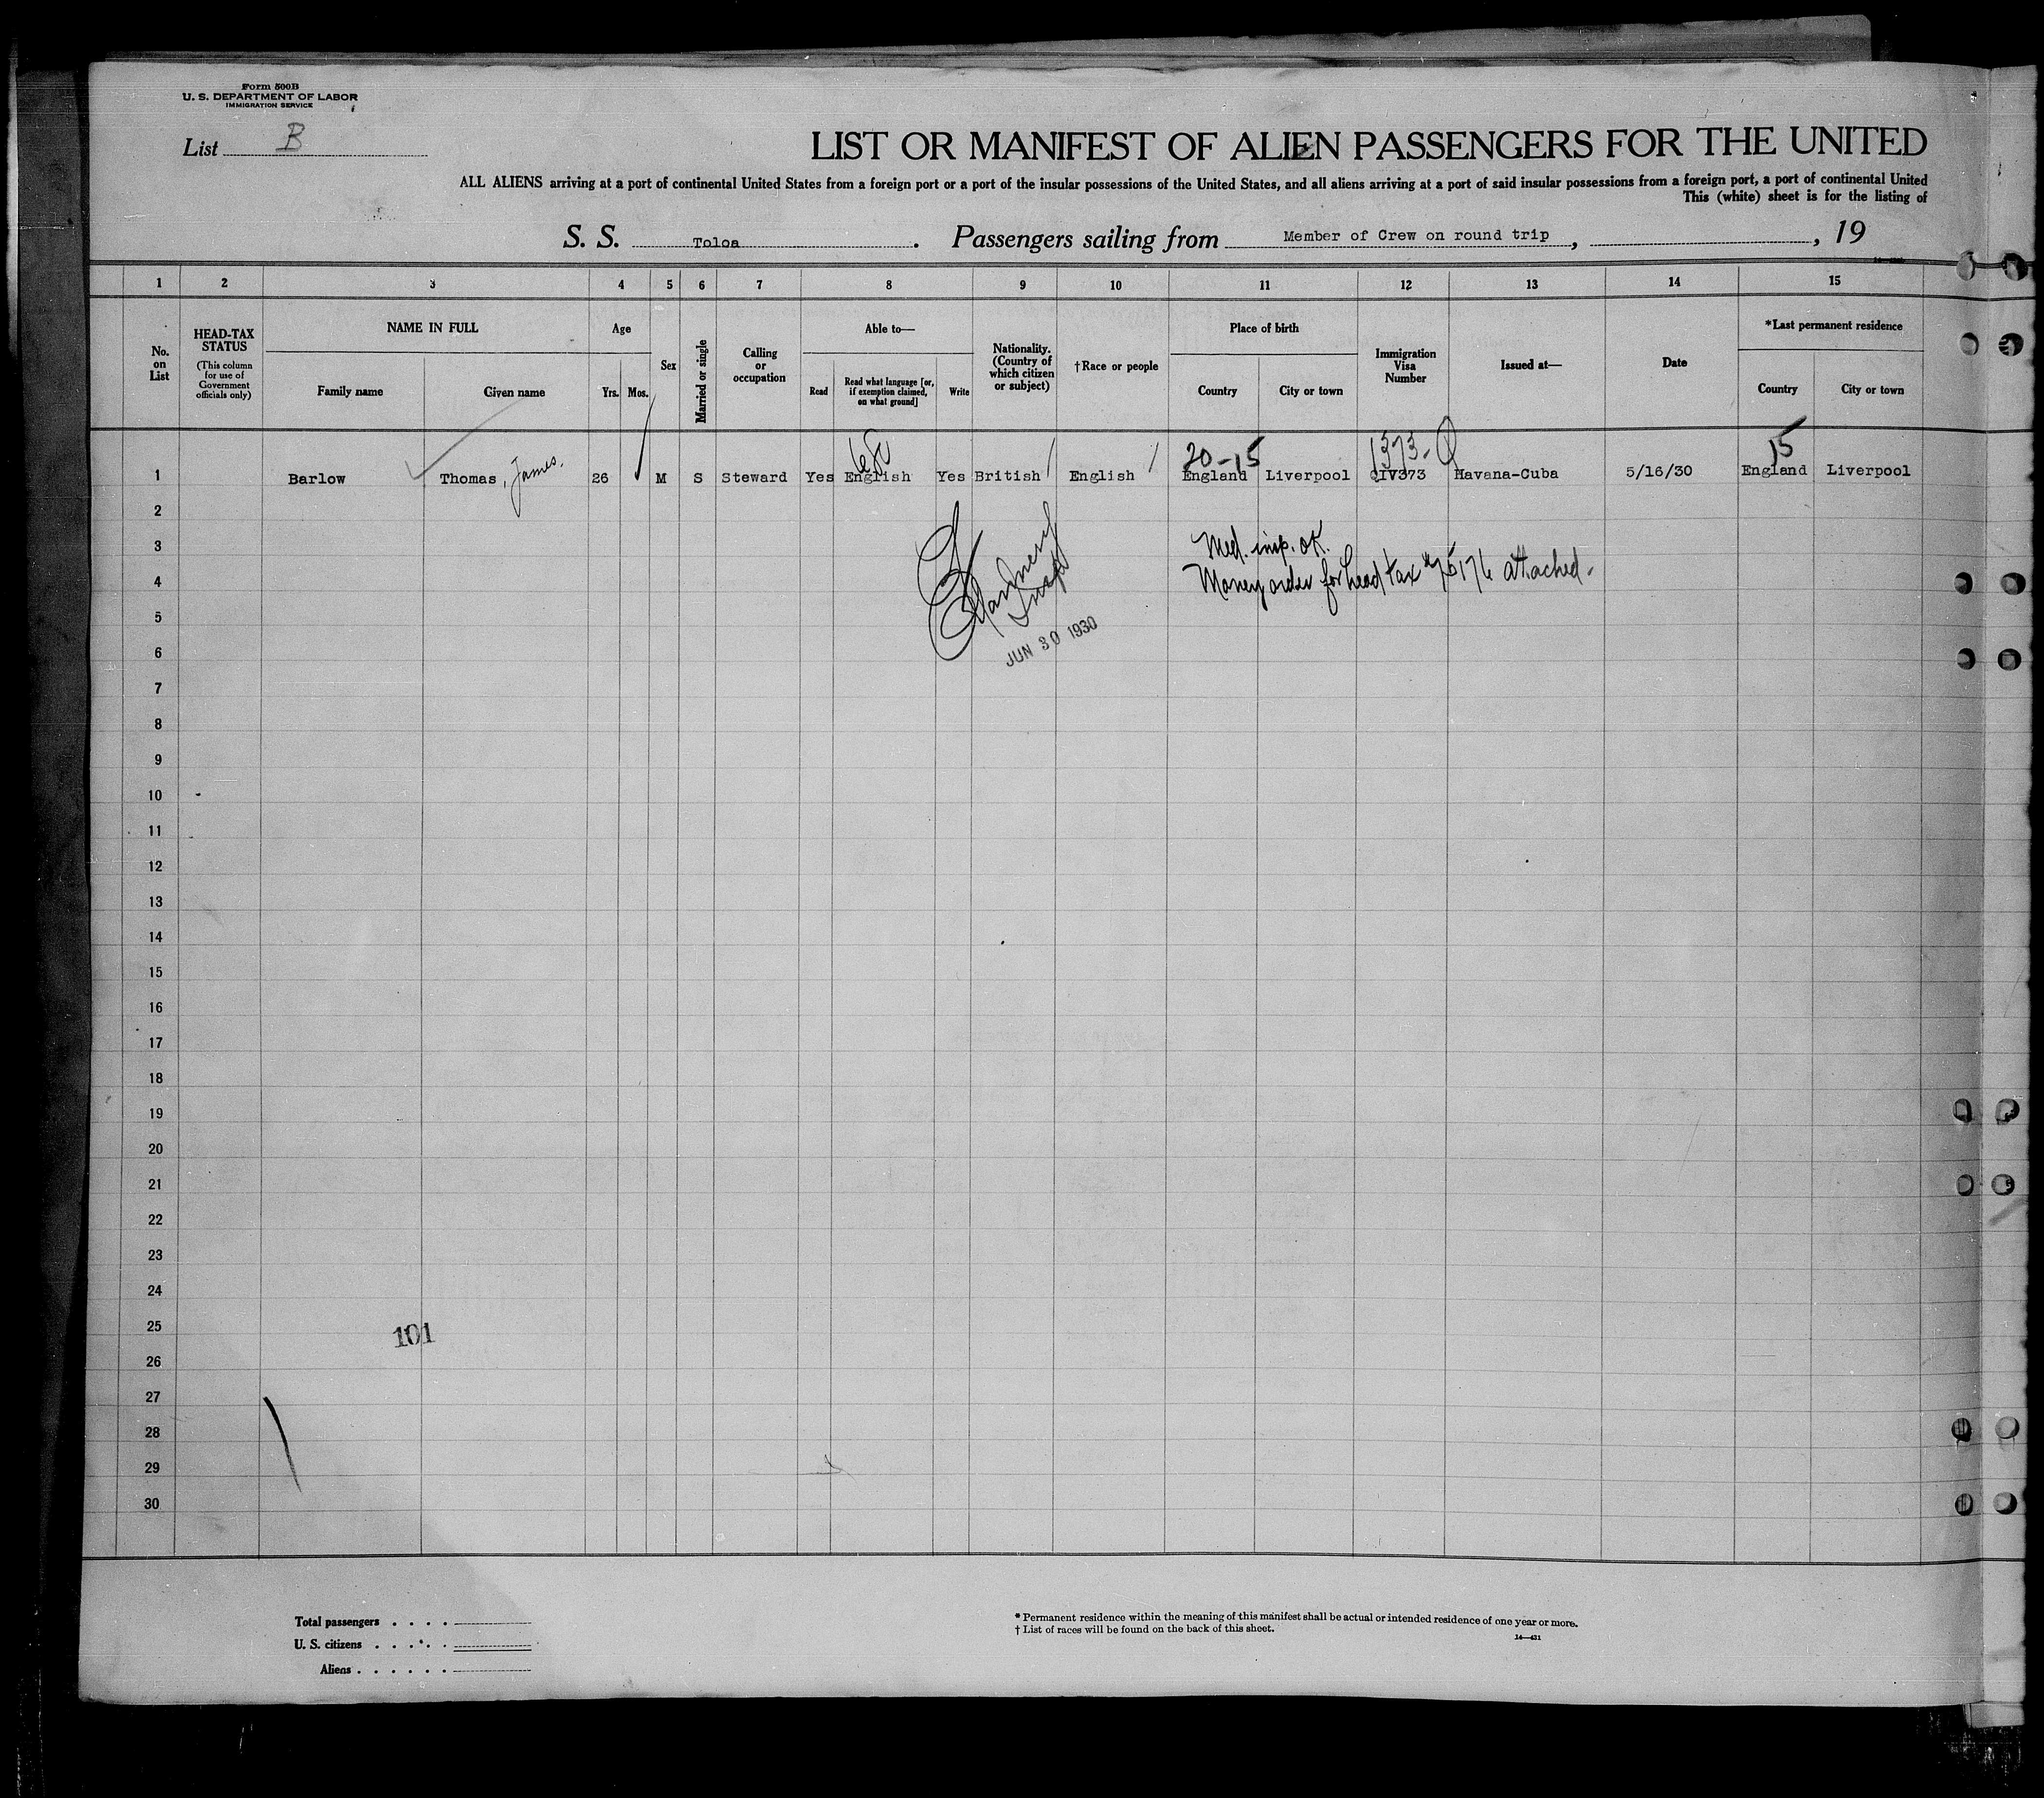 Form 500B
U. S. DEPARTMENT OF LABOR
IMMIGRATION SERVICE
List B
LIST OR MANIFEST OF ALIEN PASSENGERS FOR THE UNITED
ALL ALIENS arriving at a port of continental United States from a foreign port or a port of the insular possessions of the United States, and all aliens arriving at a port of said insular possessions from a foreign port, a port of continental United
This (white) sheet is for the listing of
S. S. Toloa. Passengers sailing from Member of Crew on round trip, , 19
1 2 3 4 5 6 7 8 9 10 11 12 13 14 15
No. on List
HEAD-TAX STATUS
(This column for use of Government officials only)
NAME IN FULL
Family name Given name
Age
Yrs. Mos.
Sex
Married or single
Calling or occupation
Able to—
Read Read what language [or, if exemption claimed, on what ground] Write
Nationality. (Country of which citizen or subject)
†Race or people
Place of birth
Country City or town
Immigration Visa Number
Issued at—
Date
*Last permanent residence
Country City or town
20-15 1373-Q 15
1 Barlow Thomas, James. 26 M S Steward Yes English Yes British English England Liverpool QIV373 Havana-Cuba 5/16/30 England Liverpool
2
3 Med. insp. OK.
4 Money order for head tax attached.
5
6 JUN 30 1930
7
8
9
10
11
12
13
14
15
16
17
18
19
20
21
22
23
24
25 101
26
27
28
29
30
Total passengers . . . .
U. S. citizens . . . . .
Aliens . . . . . .
* Permanent residence within the meaning of this manifest shall be actual or intended residence of one year or more.
† List of races will be found on the back of this sheet.
14—431